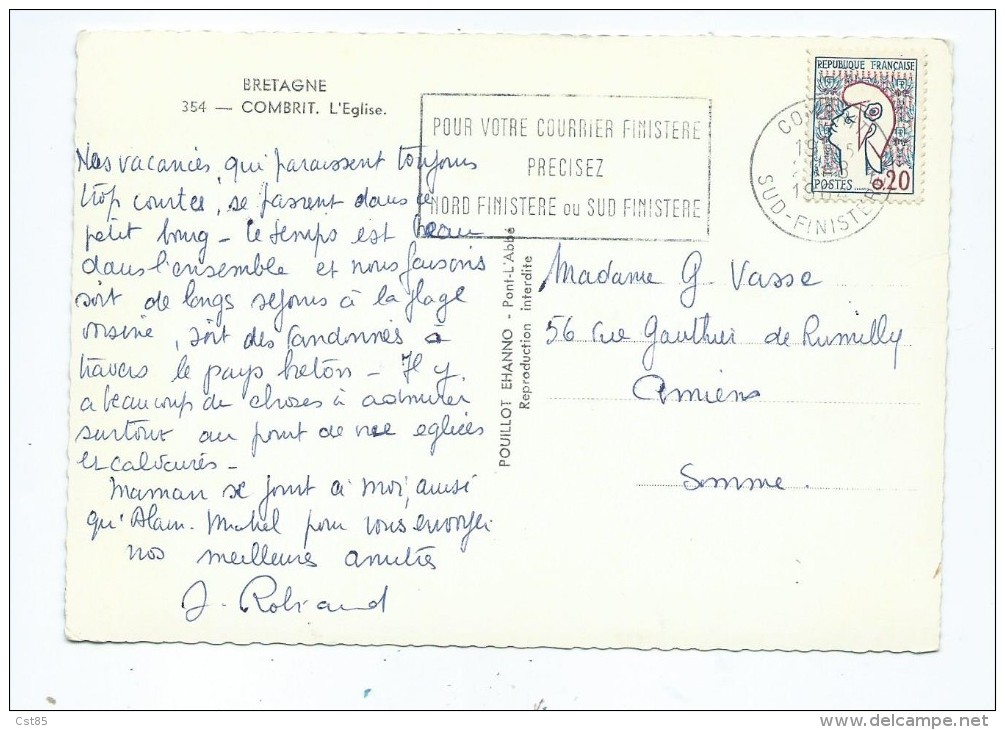 BRETAGNE
354 — COMBRIT. L'Eglise.
POUR VOTRE COURRIER FINISTERE
PRECISEZ
NORD FINISTERE OU SUD FINISTERE
REPUBLIQUE FRANÇAISE
POSTES
0.20
COMBRIT
SUD-FINISTERE
Nos vacances, qui paraissent toujours
trop courtes, se passent dans ce
petit bourg - le temps est beau
dans l'ensemble et nous faisons
soit de longs séjours à la plage
voisine, soit des randonnées à
travers le pays breton - Il y
a beaucoup de choses à admirer
surtout au point de vue eglises
et calvaires -
Maman se joint à moi, ainsi
qu'Alain. Michel pour vous envoyer
nos meilleures amitiés
J. Robiaud
POUILLOT EHANNO - Pont-L'Abbé
Reproduction interdite
Madame G Vasse
56 rue Gauthier de Rumilly
Amiens
Somme.
Cst85
www.delcampe.net